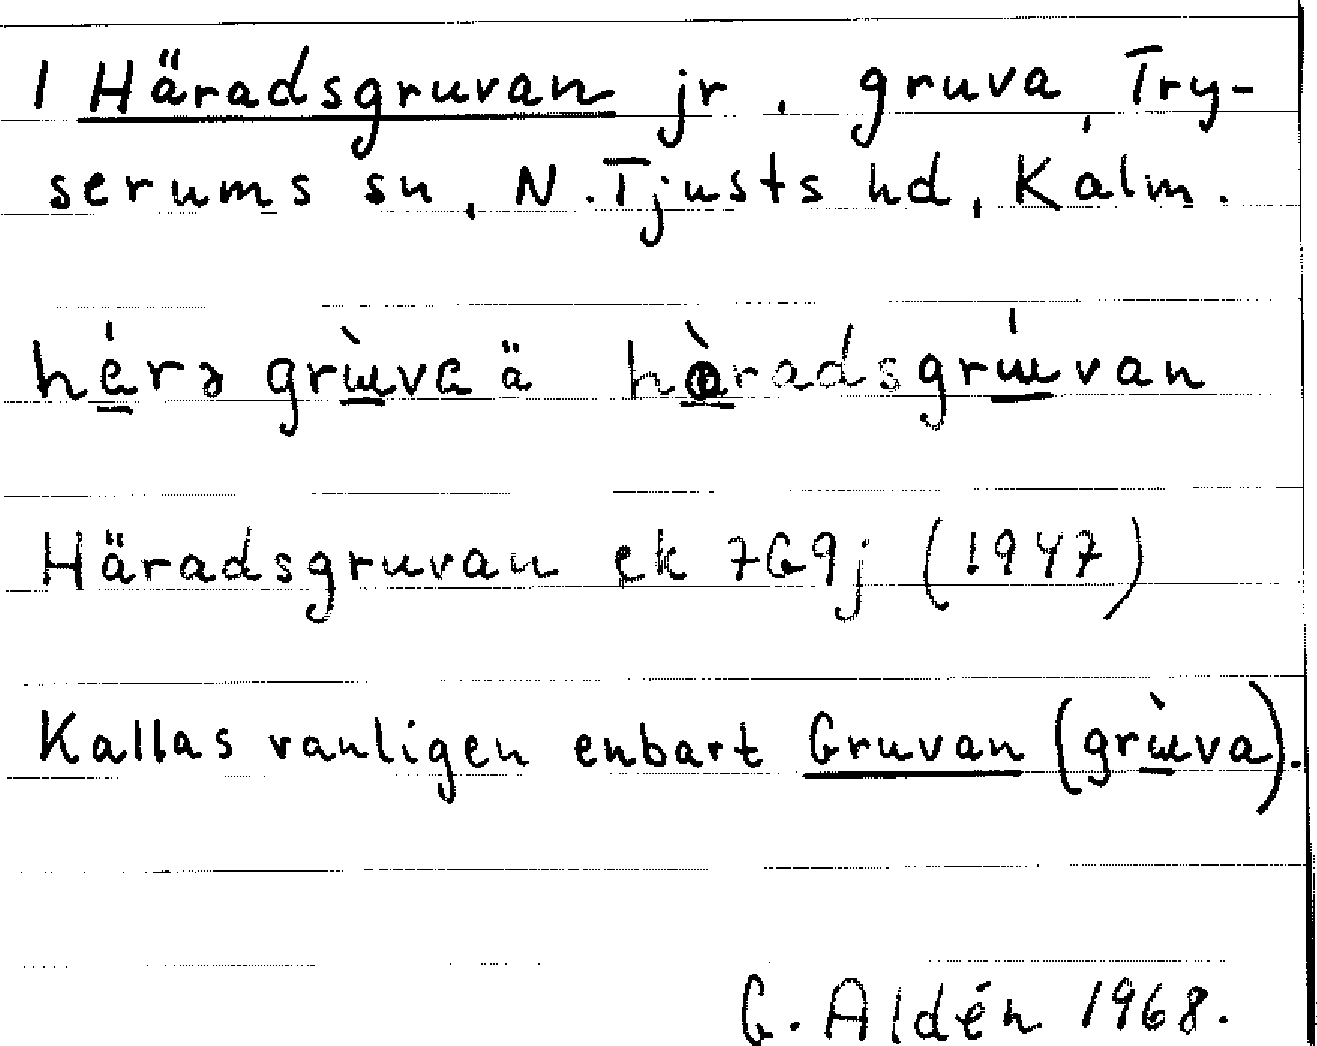 1 Häradsgruvan jr, gruva, Try-
serums sn, N. Tjusts hd, Kalm.
hérə grùva ä hàradsgrúvan
Häradsgruvan ek 7G9j (1947)
Kallas vanligen enbart Gruvan (grùva).
G. Aldén 1968.